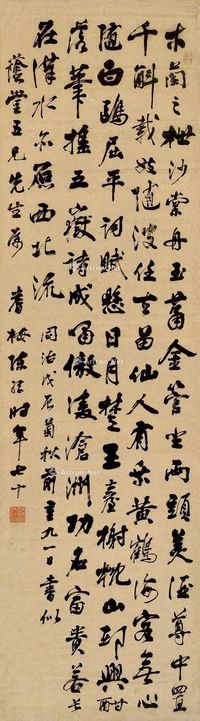 木蘭之枻沙棠舟玉蕭金管坐兩頭美酒尊中置
千斛載妓隨波任去留仙人有乘黃鶴海客無心
隨白鷗屈平詞賦懸日月楚王臺榭枕山邱興酣
落筆搖五嶽詩成笑傲凌滄洲功名富貴若長
在漢水亦應西北流
同治戊辰菊秋前重九一日書似
蔭堂五兄先生屬
陳 時年七十